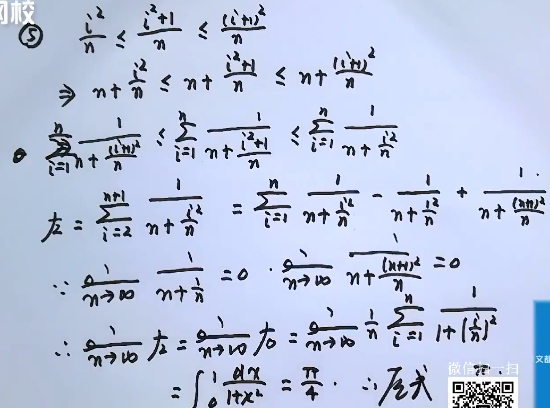 网校
⑤ i²/n ≤ (i²+1)/n ≤ (i+1)²/n
⇒ n + i²/n ≤ n + (i²+1)/n ≤ n + (i+1)²/n
∑_{i=1}^{n} 1/(n + (i+1)²/n) ≤ ∑_{i=1}^{n} 1/(n + (i²+1)/n) ≤ ∑_{i=1}^{n} 1/(n + i²/n)
左 = ∑_{i=2}^{n+1} 1/(n + i²/n) = ∑_{i=1}^{n} 1/(n + i²/n) - 1/(n + 1²/n) + 1/(n + (n+1)²/n)
∵ lim_{n→∞} 1/(n + 1/n) = 0 · lim_{n→∞} 1/(n + (n+1)²/n) = 0
∴ lim_{n→∞} 左 = lim_{n→∞} 右 = lim_{n→∞} 1/n ∑_{i=1}^{n} 1/(1 + (i/n)²)
= ∫_0^1 dx/(1+x²) = π/4 · ∴ 原式
微信扫一扫
文都